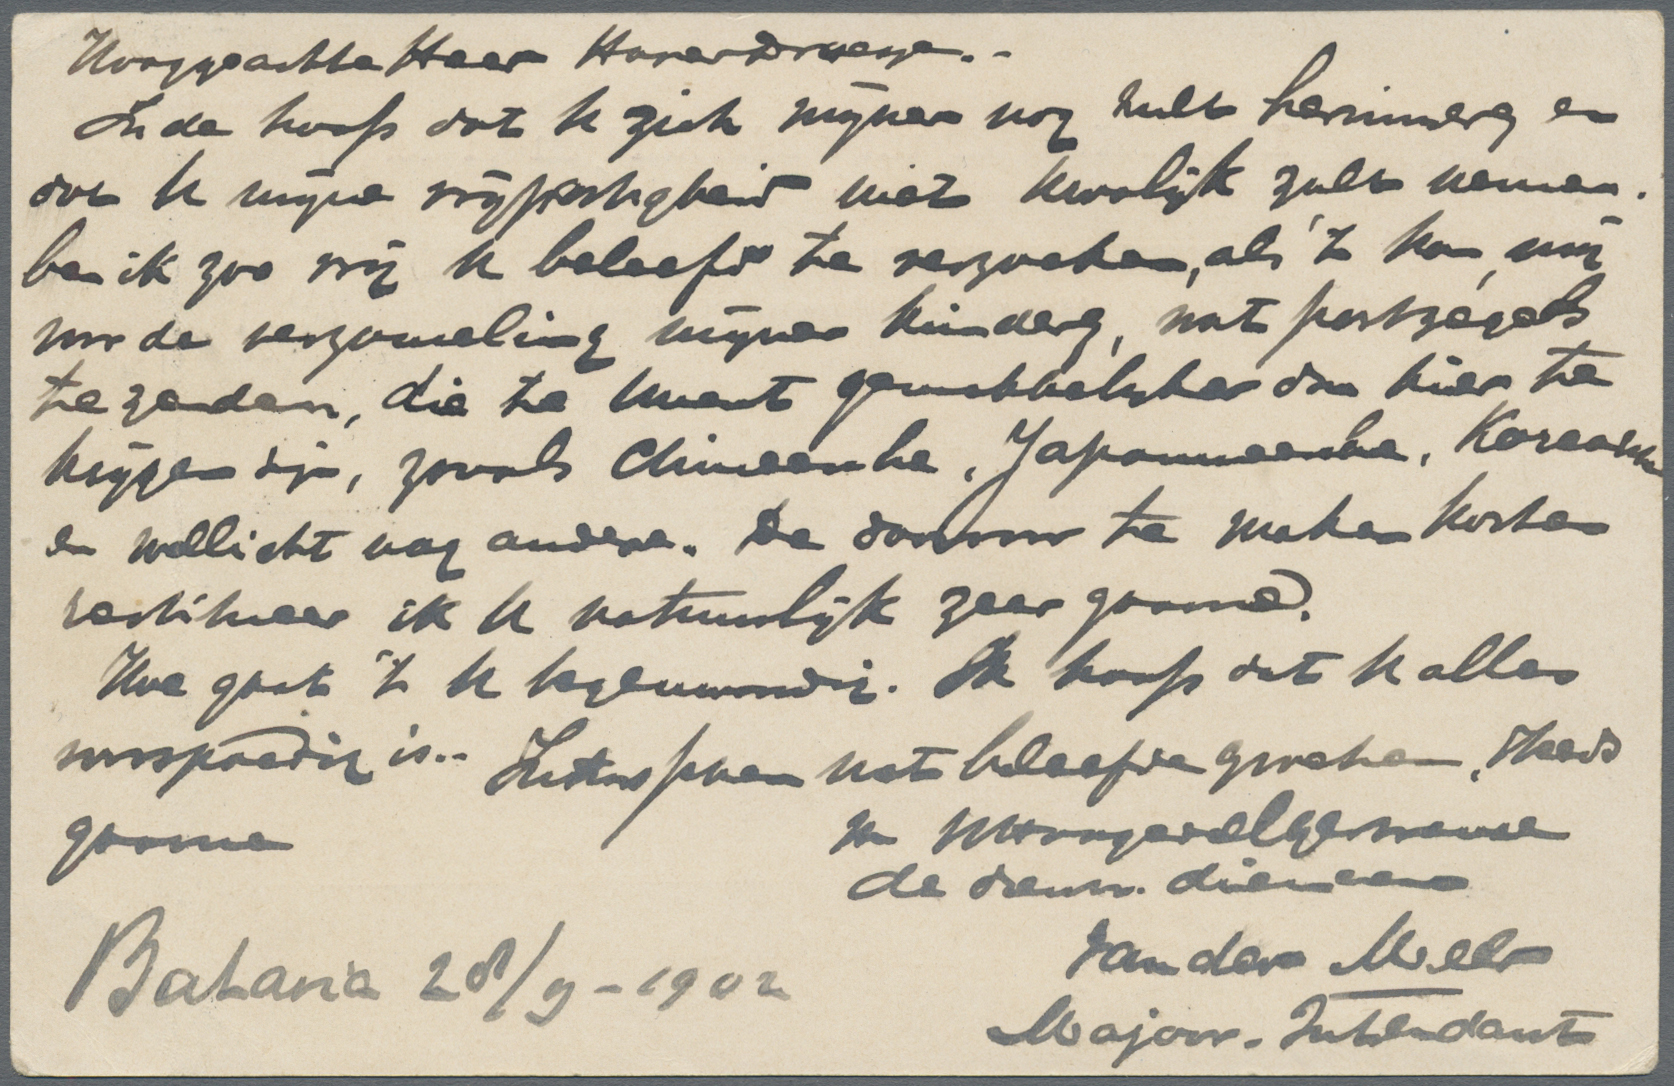 Hooggeachte Heer Haverdroeze.-
In de hoop dat U zich mijner nog zult herinneren en
dat U mijne vrijpostigheid niet kwalijk zult nemen.
ben ik zoo vrij U beleefd te verzoeken, als 't kan, mij
voor de verzameling mijner kinderen, wat postzegels
te zenden, die te Uwent gemakkelijker dan hier te
krijgen zijn, zooals Chineesche, Japanneesche, Koreaansche
en wellicht nog andere. De daarvoor te maken kosten
restitueer ik U natuurlijk zeer gaarne.
Hoe gaat 't U tegenwoordig. Ik hoop dat U alles
voorspoedig is.. Intusschen met beleefde groeten, steeds
gaarne
Uw Hoogedelgestrenge
de dienstw. dienaar
Van der Meer
Majoor-Intendant
Batavia 28/9-1902